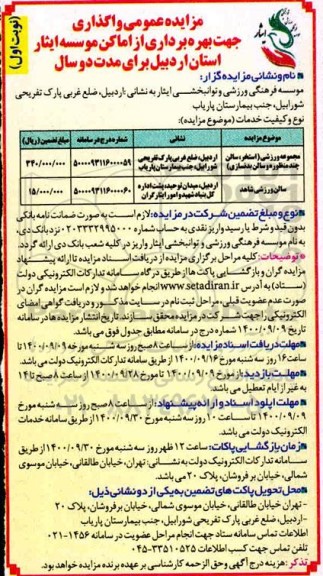 ایثار
(نوبت اول)
مزایده عمومی واگذاری
جهت بهره برداری از اماکن موسسه ایثار
استان اردبیل برای مدت دو سال
نام و نشانی مزایده گزار:
موسسه فرهنگی ورزشی و توانبخشی ایثار به نشانی: اردبیل، ضلع غربی پارک تفریحی
شورابیل، جنب بیمارستان پاریاب
نوع و کیفیت خدمات (موضوع مزایده):
موضوع مزایده نشانی شماره درج در سامانه مبلغ تضمین (ریال)
مجموعه ورزشی (استخر، سالن چند منظوره و سالن بدنسازی) اردبیل، ضلع غربی پارک تفریحی شورابیل، جنب بیمارستان پاریاب ۵۰۰۰۰۹۳۱۱۶۰۰۰۰۵۹ ۳۴۰/۰۰۰/۰۰۰
سالن ورزشی شاهد اردبیل، میدان توحید، پشت اداره کل بنیاد شهید و امور ایثارگران ۵۰۰۰۰۹۳۱۱۶۰۰۰۰۶۰ ۱۵/۰۰۰/۰۰۰
نوع و مبلغ تضمین شرکت در مزایده: لازم است به صورت ضمانت نامه بانکی
بدون قید و شرط یا رسید واریز نقدی به حساب شماره ۰۲۰۳۳۳۲۹۹۵۰۰۰ نزد بانک دی،
به نام موسسه فرهنگی ورزشی و توانبخشی ایثار واریز در کلیه شعب بانک دی ارائه گردد.
توضیحات: کلیه مراحل برگزاری مزایده از دریافت اسناد مزایده تا ارائه پیشنهاد
مزایده گران و بازگشایی پاکت ها از طریق درگاه سامانه تدارکات الکترونیکی دولت
(ستاد) به آدرس www.setadiran.ir انجام خواهد شد و لازم است مزایده گران در
صورت عدم عضویت قبلی، مراحل ثبت نام در سایت مذکور و دریافت گواهی امضای
الکترونیکی را جهت شرکت در مزایده محقق سازند. تاریخ انتشار مزایده ها در سامانه
تاریخ ۱۴۰۰/۰۹/۰۹ شماره درج در سامانه مطابق جدول فوق می باشد.
مهلت دریافت اسناد مزایده: از ساعت ۸ صبح روز سه شنبه مورخه ۱۴۰۰/۰۹/۰۹ تا
ساعت ۱۶ روز سه شنبه مورخ ۱۴۰۰/۰۹/۱۶ از طریق سامانه تدارکات الکترونیک دولت می باشد.
مهلت بازدید: از مورخ ۱۴۰۰/۰۹/۰۹ تا مورخ ۱۴۰۰/۰۹/۲۸ از ساعت ۸ صبح تا ۱۴
به غیر از ایام تعطیل می باشد.
مهلت آپلود اسناد و ارائه پیشنهاد: از ساعت ۸ صبح روز سه شنبه مورخ
۱۴۰۰/۰۹/۰۹ تا ساعت ۱۰ روز سه شنبه مورخ ۱۴۰۰/۰۹/۳۰ از طریق سامانه خدمات
الکترونیک دولت می باشد.
زمان بازگشایی پاکات: ساعت ۱۲ ظهر روز سه شنبه مورخ ۱۴۰۰/۰۹/۳۰ از طریق
سامانه تدارکات الکترونیک دولت به نشانی: تهران، خیابان طالقانی، خیابان موسوی
شمالی، خیابان برفروشان، پلاک ۲۰ می باشد.
محل تحویل پاکت های تضمین به یکی از دو نشانی ذیل:
- تهران خیابان طالقانی، خیابان موسوی شمالی، خیابان برفروشان، پلاک ۲۰
- اردبیل، ضلع غربی پارک تفریحی شورابیل، جنب بیمارستان پاریاب
اطلاعات تماس سامانه ستاد جهت انجام مراحل عضویت در سامانه ۱۴۵۶-۰۲۱
تلفن تماس جهت کسب اطلاعات ۳۳۵۱۰۵۲۵-۰۴۵
تذکر: هزینه درج آگهی و حق الزحمه کارشناسی بر عهده برنده مزایده خواهد بود.